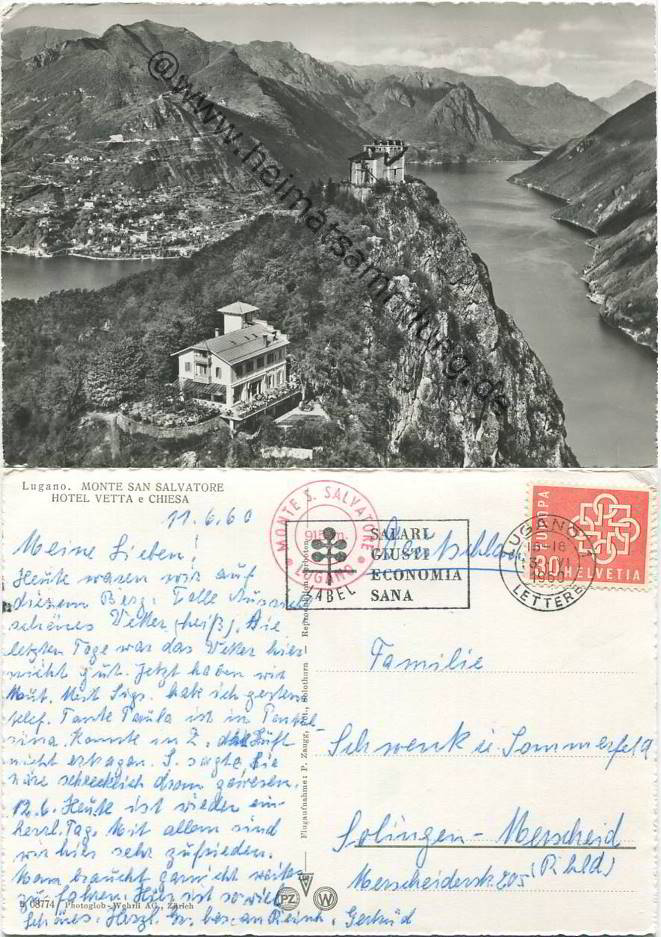 @www.heimatsammlung.de
Lugano. MONTE SAN SALVATORE
HOTEL VETTA e CHIESA
11.6.60
Meine Lieben!
Heute waren wir auf
diesem Berg. Tolle Aussicht
schönes Wetter (heiß). Die
letzten Tage war das Wetter hier
nicht gut. Jetzt haben wir
Mut. Mit Sigr. habe ich gestern
telef. Tante Paula ist in
konnte in Z. die Luft
nicht ertragen. S. sagte, sie
wäre schrecklich dran gewesen.
12.6. Heute ist wieder ein
herrl. Tag. Mit allem sind
wir hier sehr zufrieden.
Man braucht gar nicht weiter
zu fahren. Hier ist so viel
Schönes. Herzl. Gr. bes. an Reinh. Gertrud
B 03774 Photoglob-Wehrli AG., Zürich
PZ W
Flugaufnahme: P. Zaugg, Solothurn - Reproduktion verboten
MONTE S. SALVATORE
LUGANO
LABEL
SALARI
GIUSTI
ECONOMIA
SANA
Deutschland
LUGANO 1
LETTERE
1960
EUROPA
30
HELVETIA
Familie
Schwenk u. Sommerfeld
Solingen-Merscheid
Merscheiderstr. 205 (Rhld)